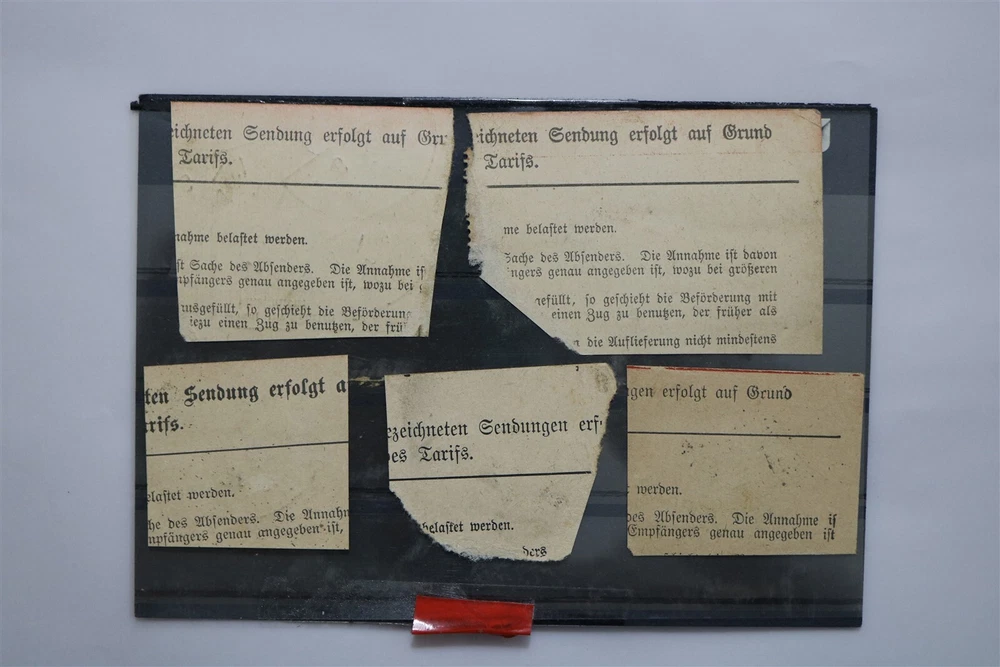 eichneten Sendung erfolgt auf Grr
Tarifs.
nahme belastet werden.
st Sache des Absenders. Die Annahme is
npfängers genau angegeben ist, wozu bei
ausgefüllt, so geschieht die Beförderung
iezu einen Zug zu benutzen, der frü
eichneten Sendung erfolgt auf Grund
Tarifs.
me belastet werden.
Sache des Absenders. Die Annahme ist davon
ngers genau angegeben ist, wozu bei größeren
gefüllt, so geschieht die Beförderung mit
einen Zug zu benutzen, der früher als
n die Auflieferung nicht mindestens
ten Sendung erfolgt a
arifs.
elastet werden.
he des Absenders. Die Annahm
npfängers genau angegeben ist,
ezeichneten Sendungen erf
des Tarifs.
belastet werden.
ders
ngen erfolgt auf Grund
werden.
des Absenders. Die Annahme is
Empfängers genau angegeben ist